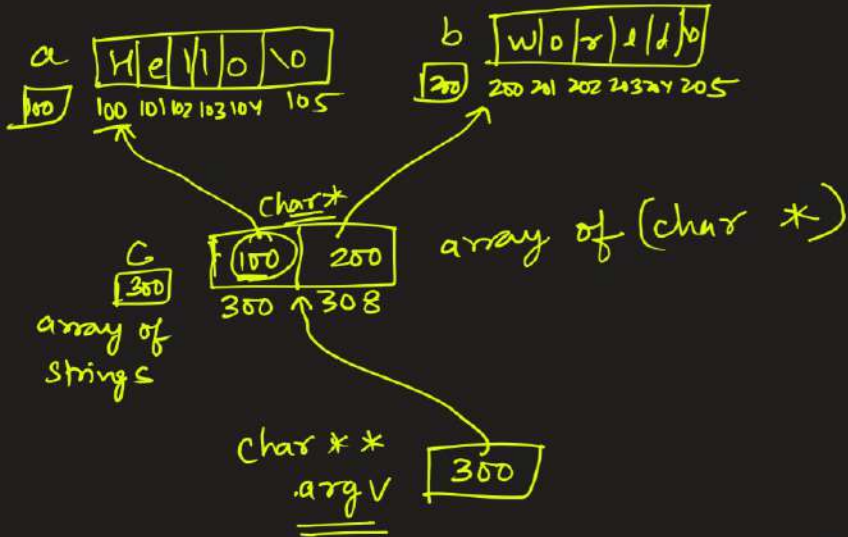 a H e l l o \0
100 100 101 102 103 104 105
b W o r l d \0
200 200 201 202 203 204 205
char*
C 100 200
300 300 308
array of (char *)
array of
strings
char **
argv 300